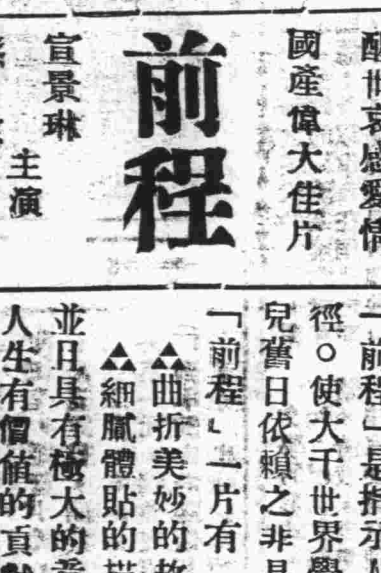 醒世哀感愛情
國產偉大佳片
前程
宣景琳
主演
「前程」是指示人
徑。使大千世界學
兒舊日依賴之非且
「前程」一片有
曲折美妙的故
細膩體貼的描
並且具有極大的意
人生有價值的貢獻